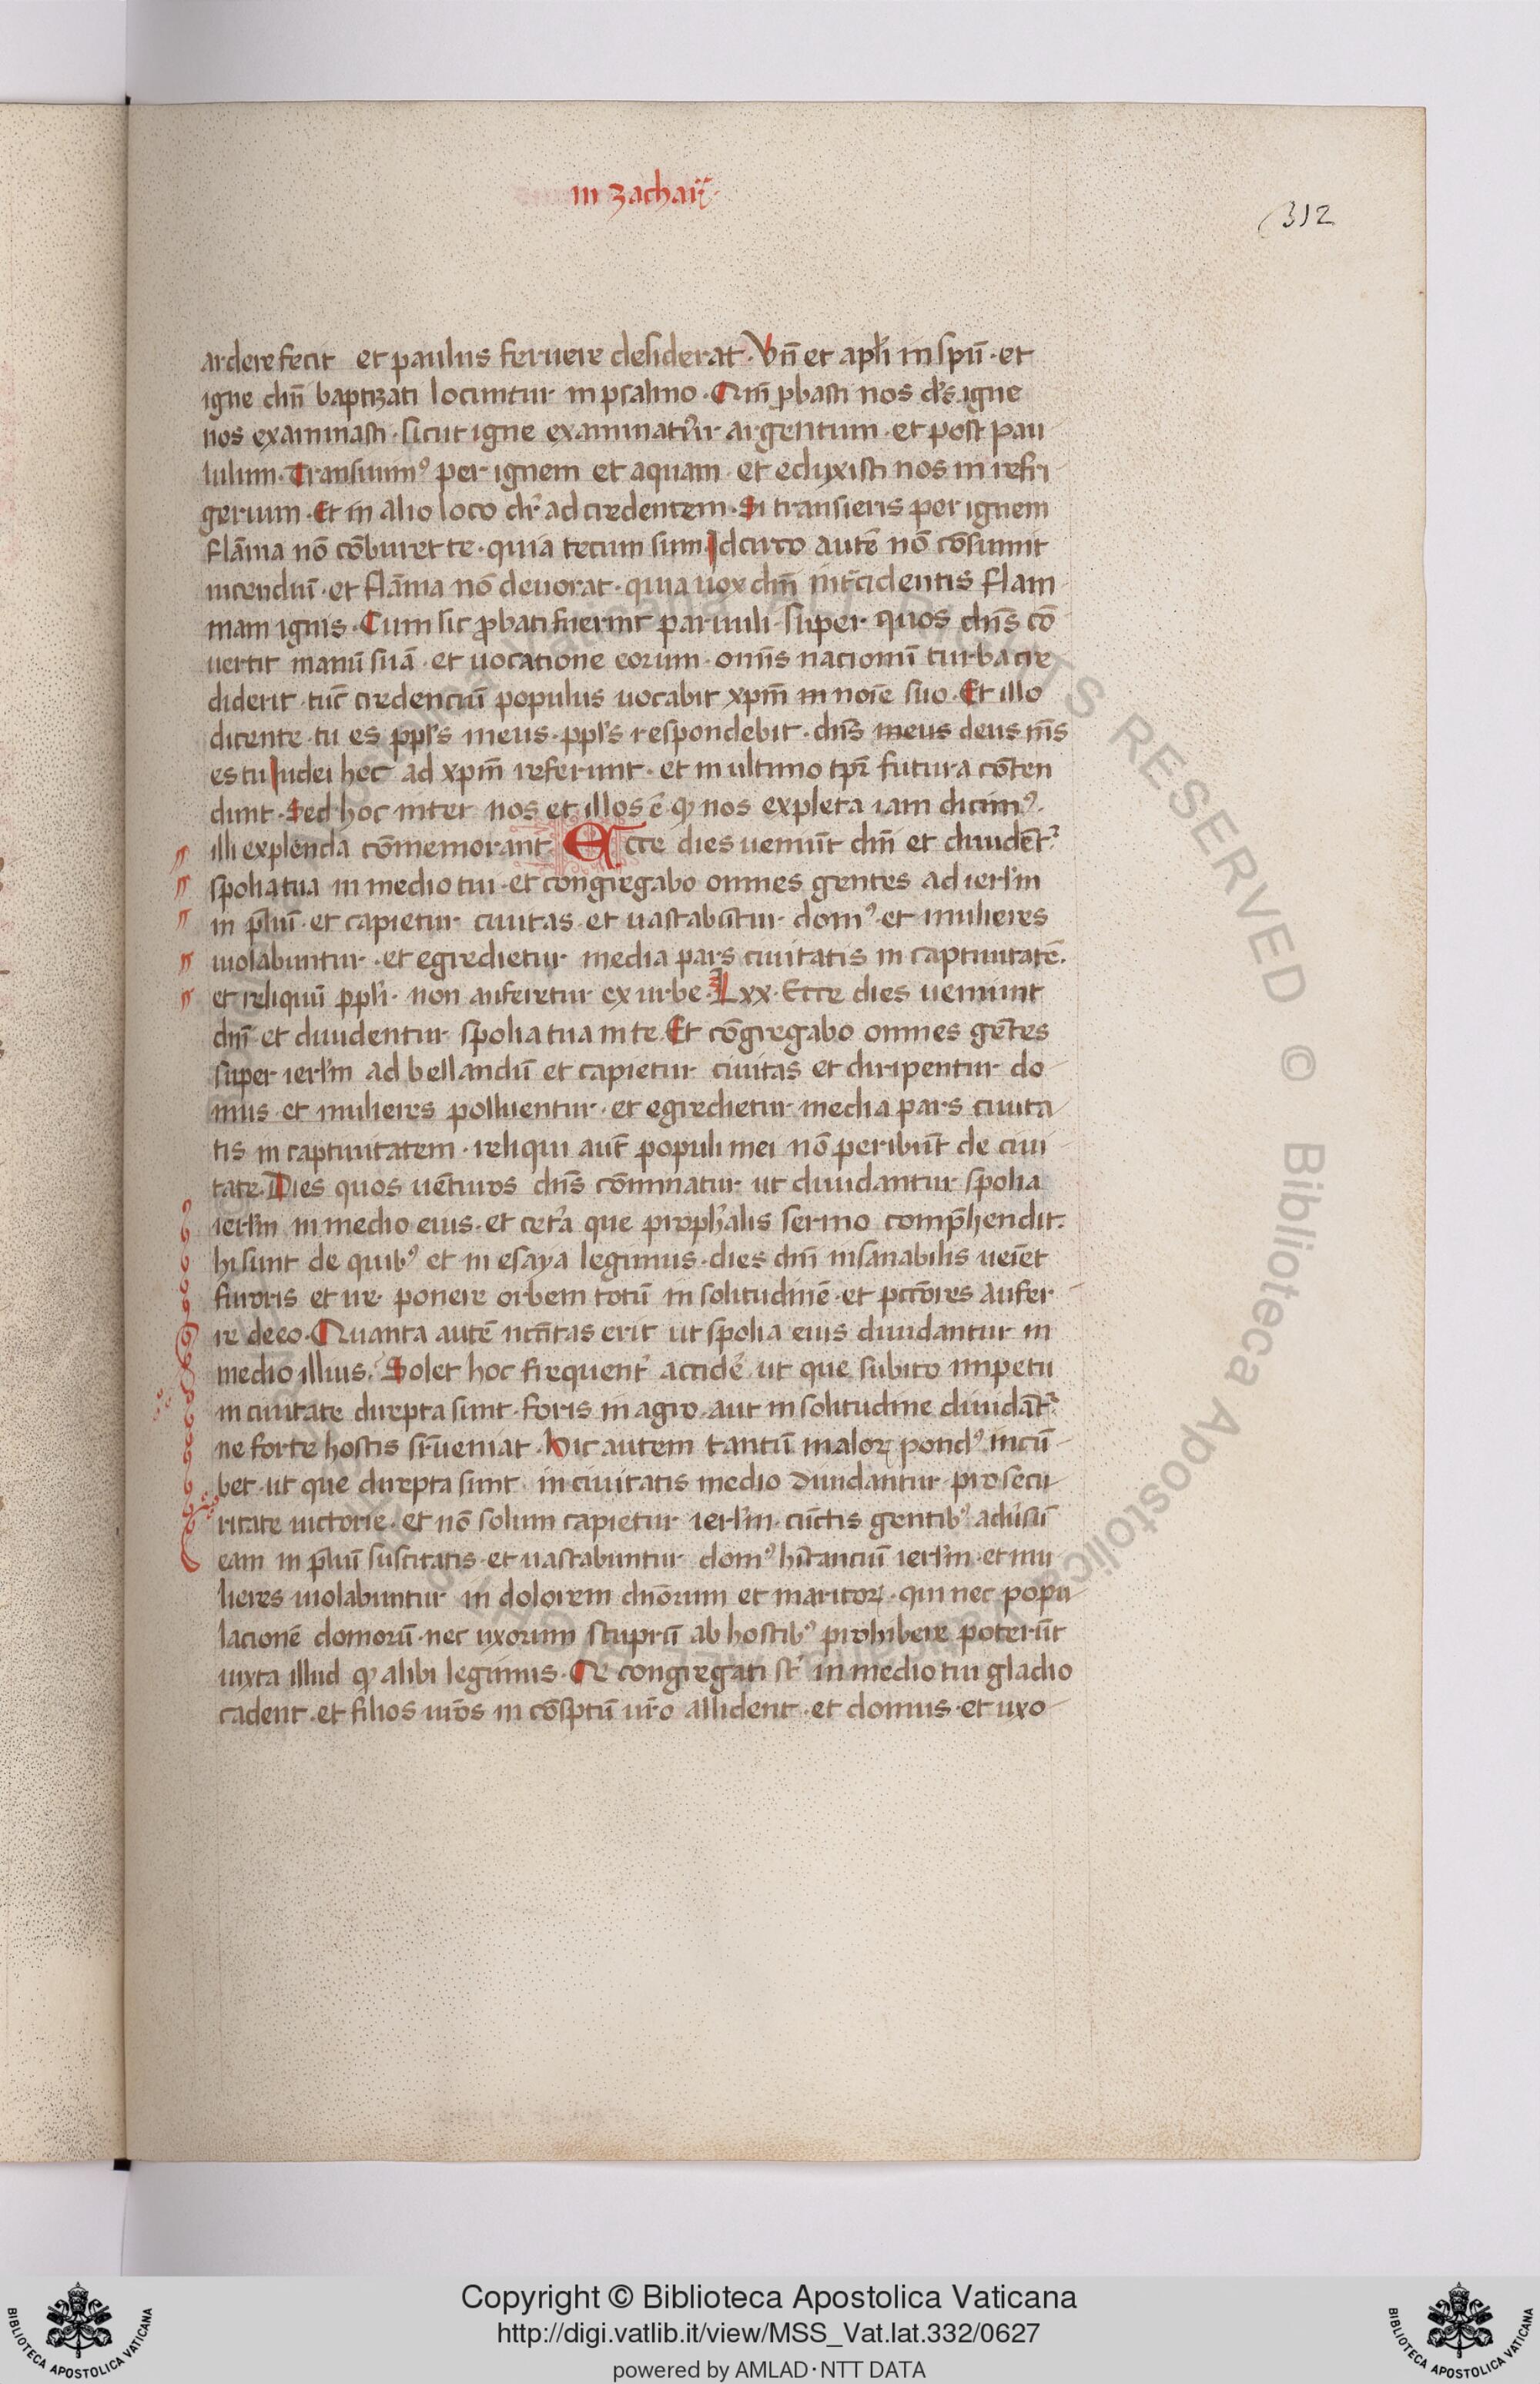 in zachar̃
312
ardere fecit et paulus feruere desiderat. Vñ et apl̃i in sp̃u. et
igne dñi baptizati locuntur in psalmo. Qm̃ ꝓbasti nos ds̃ igne
nos examinasti. sicut igne examinatur argentum. et post pau
lulum. Transiuimꝰ per ignem et aquam. et eduxisti nos in refri
gerium. Et in alio loco dr̃ ad credentem. Si transieris per ignem
flãma nõ cõburet te. quia tecum sum. Idcirco autẽ nõ cõsumit
incendiũ. et flãma nõ deuorat. quia uox dñi int̃cidentis flam
mam ignis. Cum sic ꝓbati fuerint paruuli. super quos dñs cõ
uertit manũ suã. et uocatione eorum. omĩs nacionũ turba cre
diderit. tũc credenciũ populus uocabit xp̃m in noĩe suo. Et illo
dicente. tu es ppl̃s meus. ppl̃s respondebit. dñs meus deus m̃s
es tu Iudei hec ad xp̃m referunt. et in ultimo tp̃r futura cõten
dunt. Sed hoc inter nos et illos ẽ. ꝙ nos expleta iam dicimꝰ.
illi explenda cõmemorant. Ecce dies ueniũt dñi et diuidẽt᷑
spolia tua in medio tui. et congregabo omnes gentes ad ierl̃m
in p̃liũ. et capietur ciuitas. et uastabũtur domꝰ. et mulieres
uiolabuntur. et egredietur media pars ciuitatis in captiuitatẽ.
et reliquũ ppl̃i. non auferetur ex urbe. Lxx. Ecce dies ueniunt
dñi et diuidentur spolia tua in te. Et cõgregabo omnes gẽtes
super ierl̃m ad bellandũ et capietur ciuitas et diripentur do
mus. et mulieres polluentur. et egredietur media pars ciuita
tis in captiuitatem. reliqui aut̃ populi mei nõ peribũt de ciui
tate. Dies quos uẽturos dñs cõminatur ut diuidantur spolia
ierl̃m in medio eius. et cet̃a que proph̃alis sermo comp̃hendit.
hi sunt de quibꝰ et in esaya legimus. dies dñi insanabilis ueĩet
furoris et ire ponere orbem totũ in solitudinẽ. et pctõres aufer
re de eo. Quanta autẽ nc̃itas erit ut spolia eius diuidantur in
medio illius. Solet hoc frequent̃ accidẽ. ut que subito impetu
in ciuitate direpta sunt. foris in agro. aut in solitudine diuidãt᷑
ne forte hostis sr̃ueniat. Hic autem tantũ maloꝝ pondꝰ incũ
bet. ut que direpta sunt in ciuitatis medio diuidantur pro secu
ritate uictorie. et nõ solum capietur ierl̃m. cũctis gentibꝰ adũsũ
eam in p̃liũ suscitatis. et uastabuntur domꝰ hĩtanciũ ierl̃m. et mu
lieres uiolabuntur in dolorem dñorum et maritoꝝ. qui nec popu
lacionẽ domorũ. nec uxorum stuprũ ab hostibꝰ prohibere poterũt
iuxta illud ꝙ alibi legimus. Qe congregati st̃ in medio tui gladio
cadent. et filios ur̃os in cõsptũ ur̃o allident. et domus. et uxo
Copyright © Biblioteca Apostolica Vaticana
http://digi.vatlib.it/view/MSS_Vat.lat.332/0627
powered by AMLAD·NTT DATA